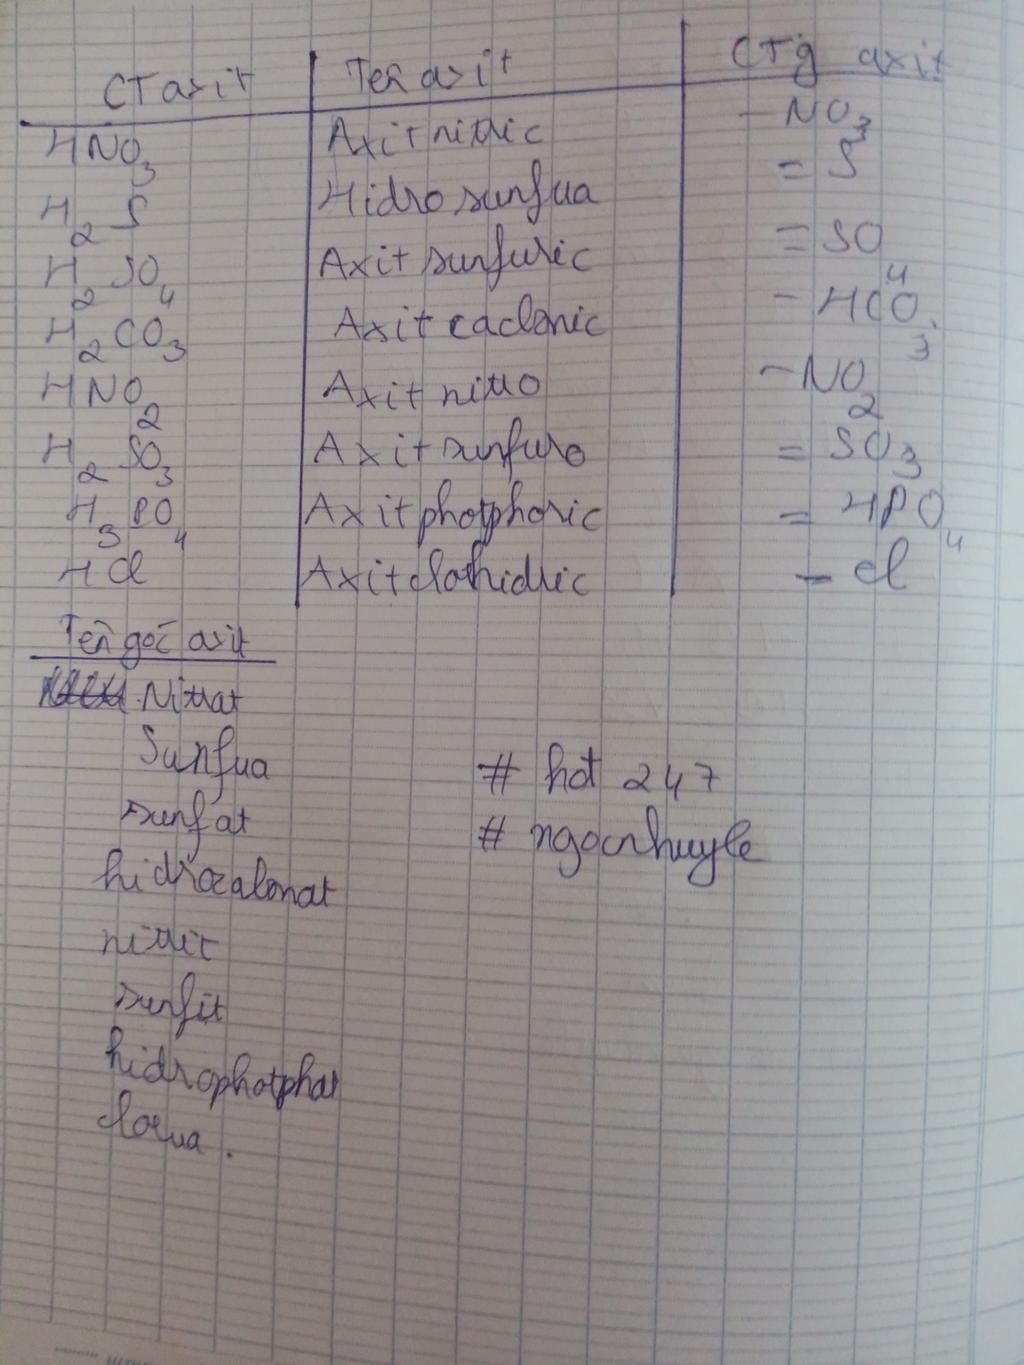 CT axit Tên axit CT g axit
HNO3 Axit nitric - NO3
H2S Hidro sunfua = S
H2SO4 Axit sunfuric = SO4
H2CO3 Axit cacbonic - HCO3
HNO2 Axit nitrơ - NO2
H2SO3 Axit sunfurơ = SO3
H3PO4 Axit photphoric = HPO4
HCl Axit clohidric - Cl
Tên gốc axit
Nitrat
Sunfua
sunfat
# hot 247
hidrocacbonat
# ngocnhuyle
nitrit
sunfit
hidrophotphat
clorua.